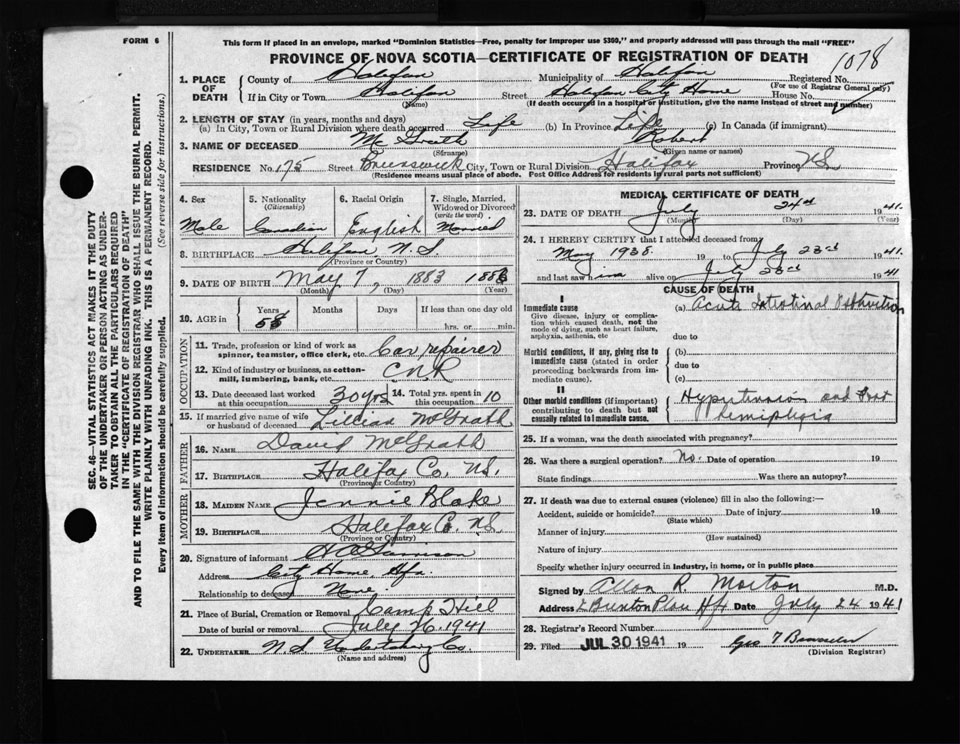 FORM 6
This form if placed in an envelope, marked "Dominion Statistics—Free, penalty for improper use $300," and properly addressed will pass through the mail "FREE"
PROVINCE OF NOVA SCOTIA—CERTIFICATE OF REGISTRATION OF DEATH
1078
1. PLACE OF DEATH County of Halifax Municipality of Halifax Registered No.
(For use of Registrar General only)
If in City or Town Halifax Street Halifax City Home House No.
(Name) (If death occurred in a hospital or institution, give the name instead of street and number)
2. LENGTH OF STAY (in years, months and days)
(a) In City, Town or Rural Division where death occurred Life (b) In Province Life (c) In Canada (if immigrant)
3. NAME OF DECEASED McGrath Robert
(Surname) (Given name or names)
RESIDENCE No. 175 Street Brunswick City, Town or Rural Division Halifax Province NS
(Residence means usual place of abode. Post Office Address for residents in rural parts not sufficient)
4. Sex 5. Nationality (Citizenship) 6. Racial Origin 7. Single, Married, Widowed or Divorced (write the word)
Male Canadian English Married
8. BIRTHPLACE Halifax N.S.
(Province or Country)
9. DATE OF BIRTH May 7, 1883 188
(Month) (Day) (Year)
10. AGE in Years Months Days If less than one day old
58 hrs. or min.
OCCUPATION
11. Trade, profession or kind of work as spinner, teamster, office clerk, etc. Car repairer
12. Kind of industry or business, as cotton-mill, lumbering, bank, etc. CNR
13. Date deceased last worked at this occupation 30 yrs 14. Total yrs. spent in this occupation 10
15. If married give name of wife or husband of deceased Lillian McGrath
FATHER
16. NAME David McGrath
17. BIRTHPLACE Halifax Co. NS.
(Province or Country)
MOTHER
18. MAIDEN NAME Jennie Blake
19. BIRTHPLACE Halifax Co. NS
(Province or Country)
20. Signature of informant
Address City Home, Hfx.
Relationship to deceased None.
21. Place of Burial, Cremation or Removal Camp Hill
Date of burial or removal July 26, 1941
22. UNDERTAKER N S Undertaking Co
(Name and address)
MEDICAL CERTIFICATE OF DEATH
23. DATE OF DEATH July 24th 1941.
(Month) (Day) (Year)
24. I HEREBY CERTIFY that I attended deceased from
May 1938. 19 to July 23rd 1941.
and last saw him alive on July 23rd 1941
CAUSE OF DEATH
I
Immediate cause
Give disease, injury or complication which caused death, not the mode of dying, such as heart failure, asphyxia, asthenia, etc
(a) Acute Intestinal Obstruction
due to
Morbid conditions, if any, giving rise to immediate cause (stated in order proceeding backwards from immediate cause).
(b)
due to
(c)
II
Other morbid conditions (if important) contributing to death but not causally related to immediate cause.
Hypertension and
Hemiplegia
25. If a woman, was the death associated with pregnancy?
26. Was there a surgical operation? No. Date of operation 19
State findings Was there an autopsy?
27. If death was due to external causes (violence) fill in also the following:—
Accident, suicide or homicide? Date of injury 19
(State which)
Manner of injury
(How sustained)
Nature of injury
Specify whether injury occurred in industry, in home, or in public place
Signed by Allan R. Morton M.D.
Address Hfx Date July 24 1941
28. Registrar's Record Number
29. Filed JUL 30 1941 19 Geo T
(Division Registrar)
SEC. 46—VITAL STATISTICS ACT MAKES IT THE DUTY
OF THE UNDERTAKER OR PERSON ACTING AS UNDER-
TAKER TO OBTAIN ALL THE PARTICULARS REQUIRED
IN THE "CERTIFICATE OF REGISTRATION OF DEATH"
AND TO FILE THE SAME WITH THE DIVISION REGISTRAR WHO SHALL ISSUE THE BURIAL PERMIT.
WRITE PLAINLY WITH UNFADING INK. THIS IS A PERMANENT RECORD.
Every item of information should be carefully supplied. (See reverse side for instructions.)